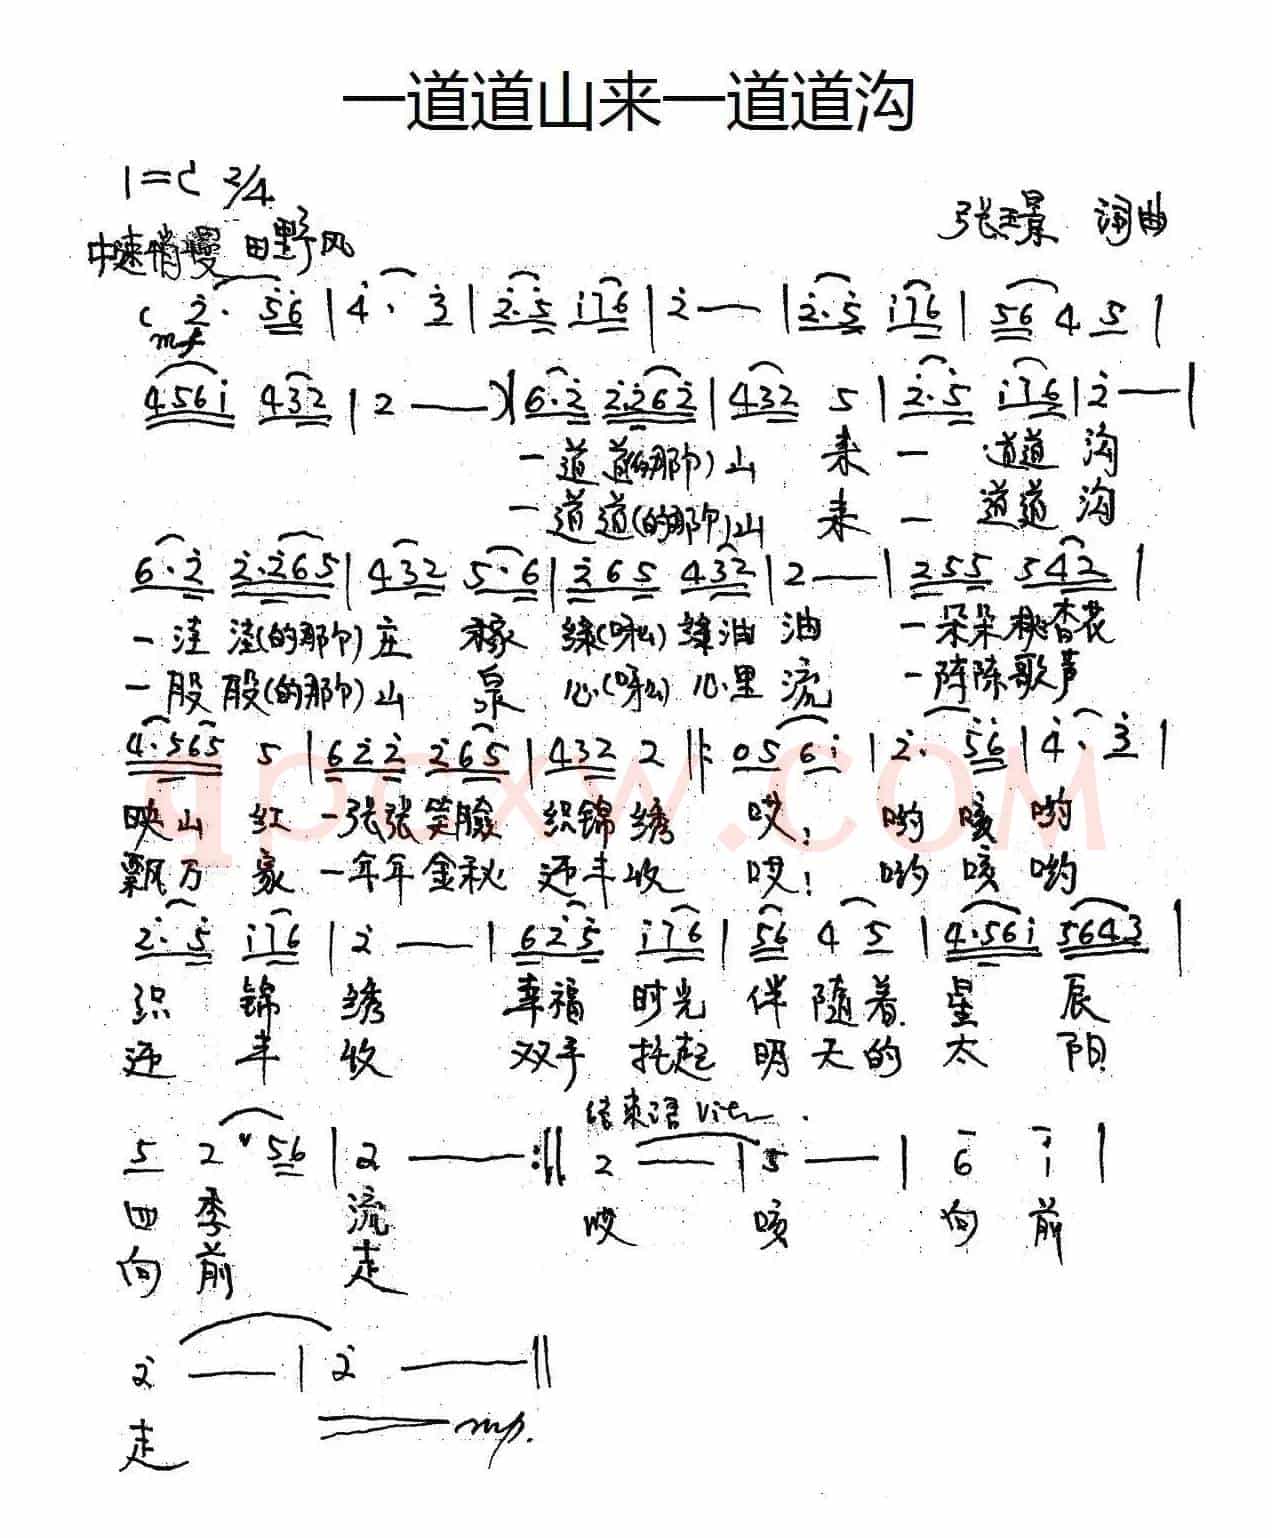 一道道山来一道道沟
1=C 2/4
张璟 词曲
中速稍慢 田野风
( 2̇· 5̇6̇ | 4̇· 3̇ | 2̇·5̇ i̇76 | 2̇ — | 2̇·5̇ i̇76 | 56 4 5 |
mf
4·56i̇ 432 | 2 — ) | 6·2̇ 2̇·2̇62̇ | 432 5 | 2̇·5̇ i̇76 | 2̇ — |
一道道(的那个)山 来 一 道道 沟
一道道(的那个)山 来 一 道道 沟
6·2̇ 2̇·2̇65 | 432 5·6 | 2̇65 432 | 2 — | 255 542 |
一洼洼(的那个)庄 稼 绿(呀么)绿油油 一朵朵桃杏花
一股股(的那个)山 泉 心(呀么)心里流 一阵阵歌声
4·565 5 | 62̇2̇ 2̇65 | 432 2 ‖: 05 6i̇ | 2̇· 5̇6̇ | 4̇· 3̇ |
映山 红 一张张笑脸 织锦绣 哎! 哟 咳 哟
飘万 家 一年年金秋 迎丰收 哎! 哟 咳 哟
2̇·5̇ i̇76 | 2̇ — | 62̇5̇ i̇76 | 56 4 5 | 4·56i̇ 5643 |
织 锦 绣 幸福 时光 伴 随着 星 辰
迎 丰 收 双手 托起 明 天的 太 阳
结束语
5 2 ∨ 56 | 2 — :‖ 2 — | 5 — | 6 i̇ |
四季 流 哎 咳 向 前
向前 走
2̇ — | 2̇ — ‖
走 mp.
qpcxw.com